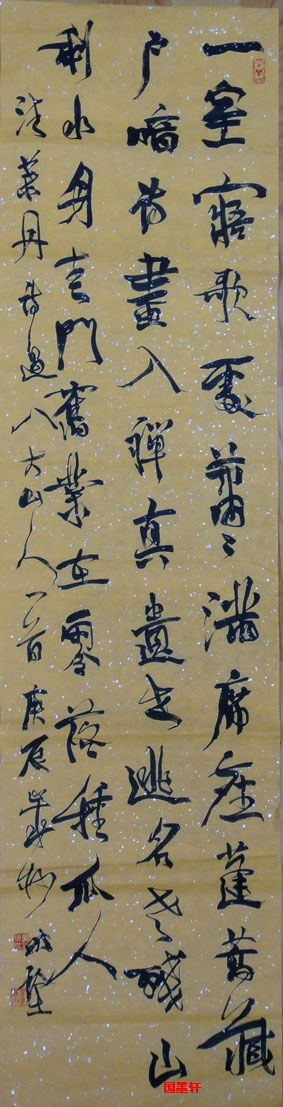 一室寤歌處蕭々滿席塵蓬蒿藏
户暗詩畫入禪真遺世逃名老殘山
剩水身青門舊業在零落種瓜人
清葉丹詩過八大山人一首庚辰
国墨轩